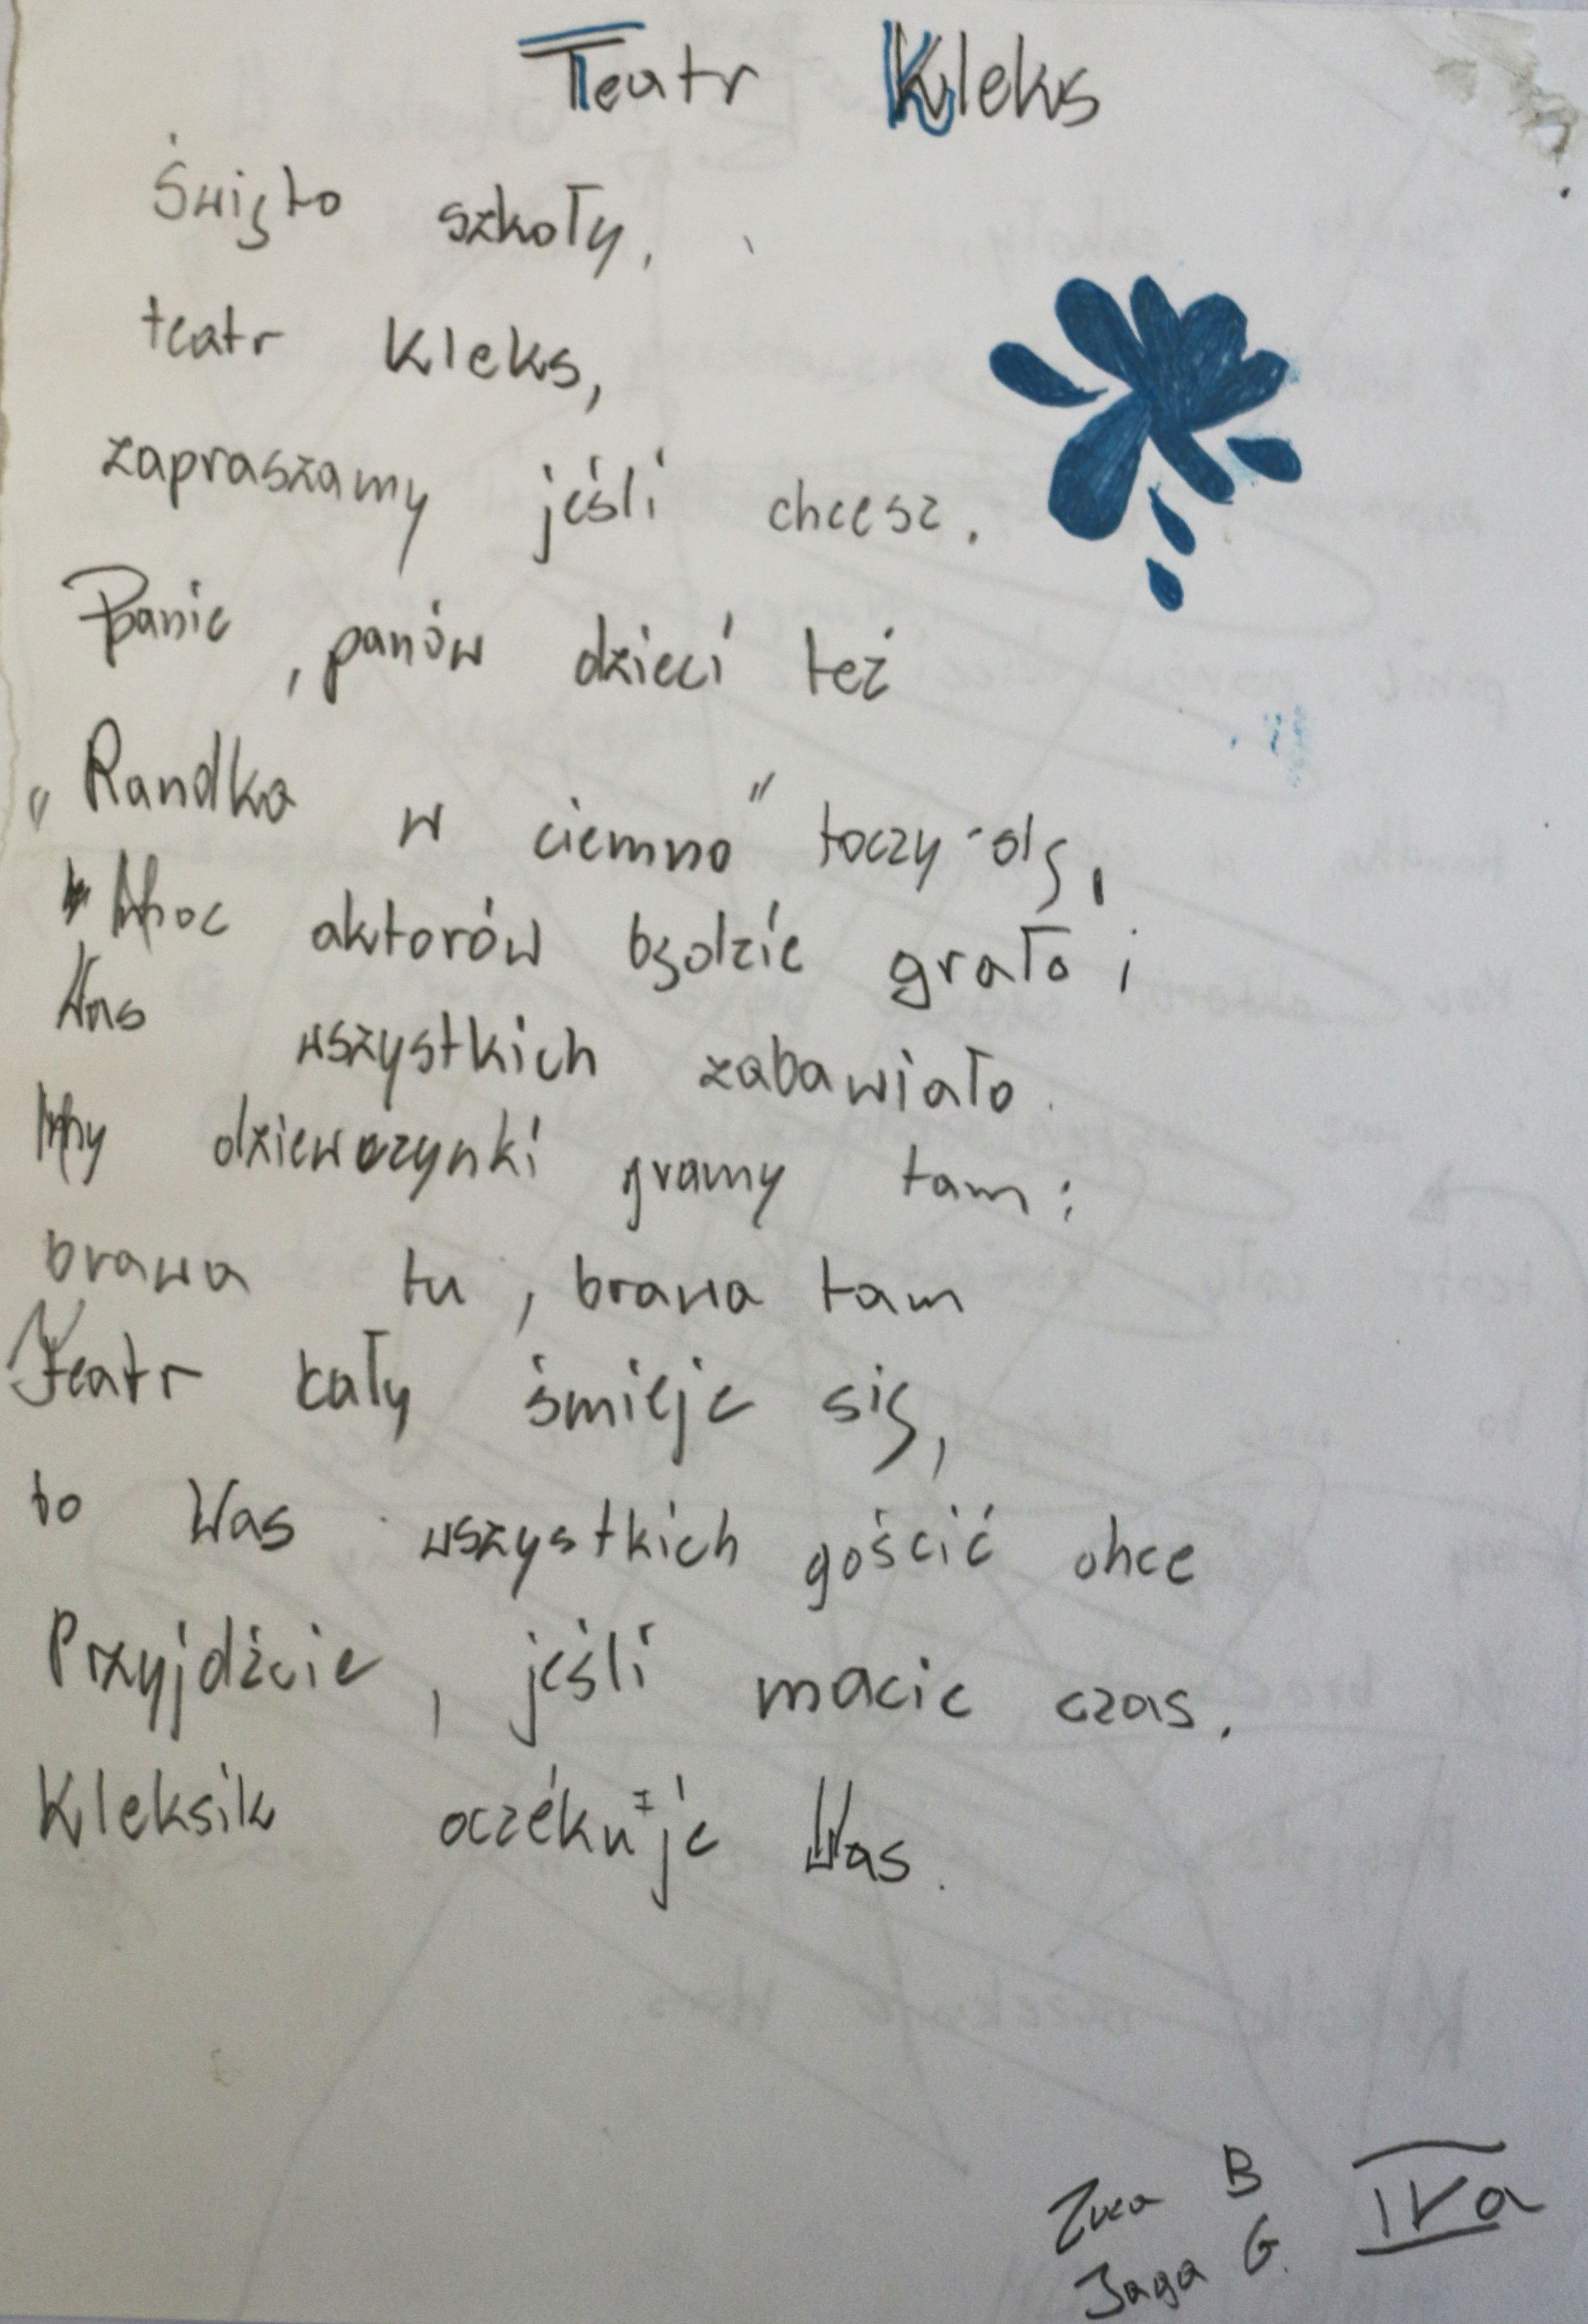 Teatr Kleks
Święto szkoły,
teatr Kleks,
zapraszamy jeśli chcesz.
Panie, panów dzieci też
"Randka w ciemno" toczy się,
Moc aktorów będzie grało i
Was wszystkich zabawiało.
My dziewczynki gramy tam:
brawa tu, brawa tam
Teatr cały śmieje się,
to Was wszystkich gościć chce
Przyjdźcie, jeśli macie czas.
Kleksik oczekuje Was.
B IVa
Jaga G.